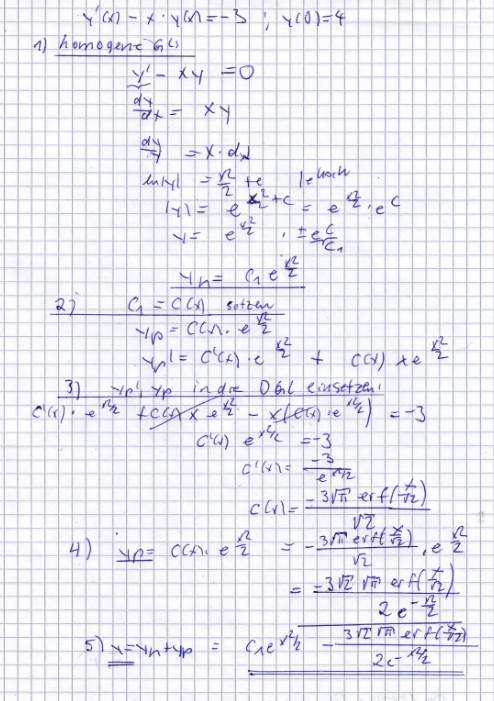 y'(x) - x · y(x) = -3 ; y(0)=4
1) homogene Gl.
y' - xy = 0
dy/dx = xy
dy/y = x · dx
ln|y| = x²/2 + c
|y| = e^(x²/2 + c) = e^(x²/2) · e^c
y = e^(x²/2) · ±e^c
C₁
yh = C₁ e^(x²/2)
2) C₁ = C(x) setzen
yp = C(x) · e^(x²/2)
yp' = C'(x) · e^(x²/2) + C(x) x e^(x²/2)
3) yp', yp in die DGL einsetzen:
C'(x) · e^(x²/2) + C(x) x e^(x²/2) - x(C(x) · e^(x²/2)) = -3
C'(x) e^(x²/2) = -3
C'(x) = -3/e^(x²/2)
C(x) = -3√π erf(x/√2)/√2
4) yp = C(x) · e^(x²/2) = -3√π erf(x/√2)/√2 · e^(x²/2)
= -3√2 √π erf(x/√2)/2e^(-x²/2)
5) y = yh + yp = C₁e^(x²/2) - 3√2 √π erf(x/√2)/2e^(-x²/2)